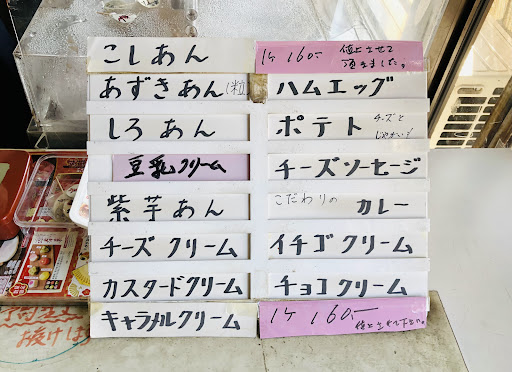 こしあん
あずきあん(粒)
しろあん
豆乳クリーム
紫芋あん
チーズクリーム
カスタードクリーム
キャラメルクリーム
1ケ 160.-
値上させて
頂きました。
ハムエッグ
ポテト
チーズと
じゃがいも
チーズソーセージ
こだわりの カレー
イチゴクリーム
チョコクリーム
1ケ 160.-
お焼けは